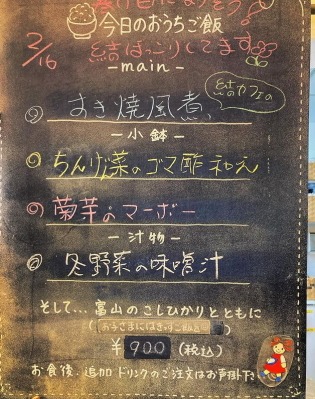 今日のおうちご飯
2/16
結ばっこりしてます
－main－
すき焼風煮、
結カフェの
－小鉢－
ちんげん菜のゴマ酢和え
菊芋のマーボー
－汁物－
冬野菜の味噌汁
そして…富山のこしひかりとともに
￥900（税込）
お食後、追加ドリンクのご注文はお声掛け下さ